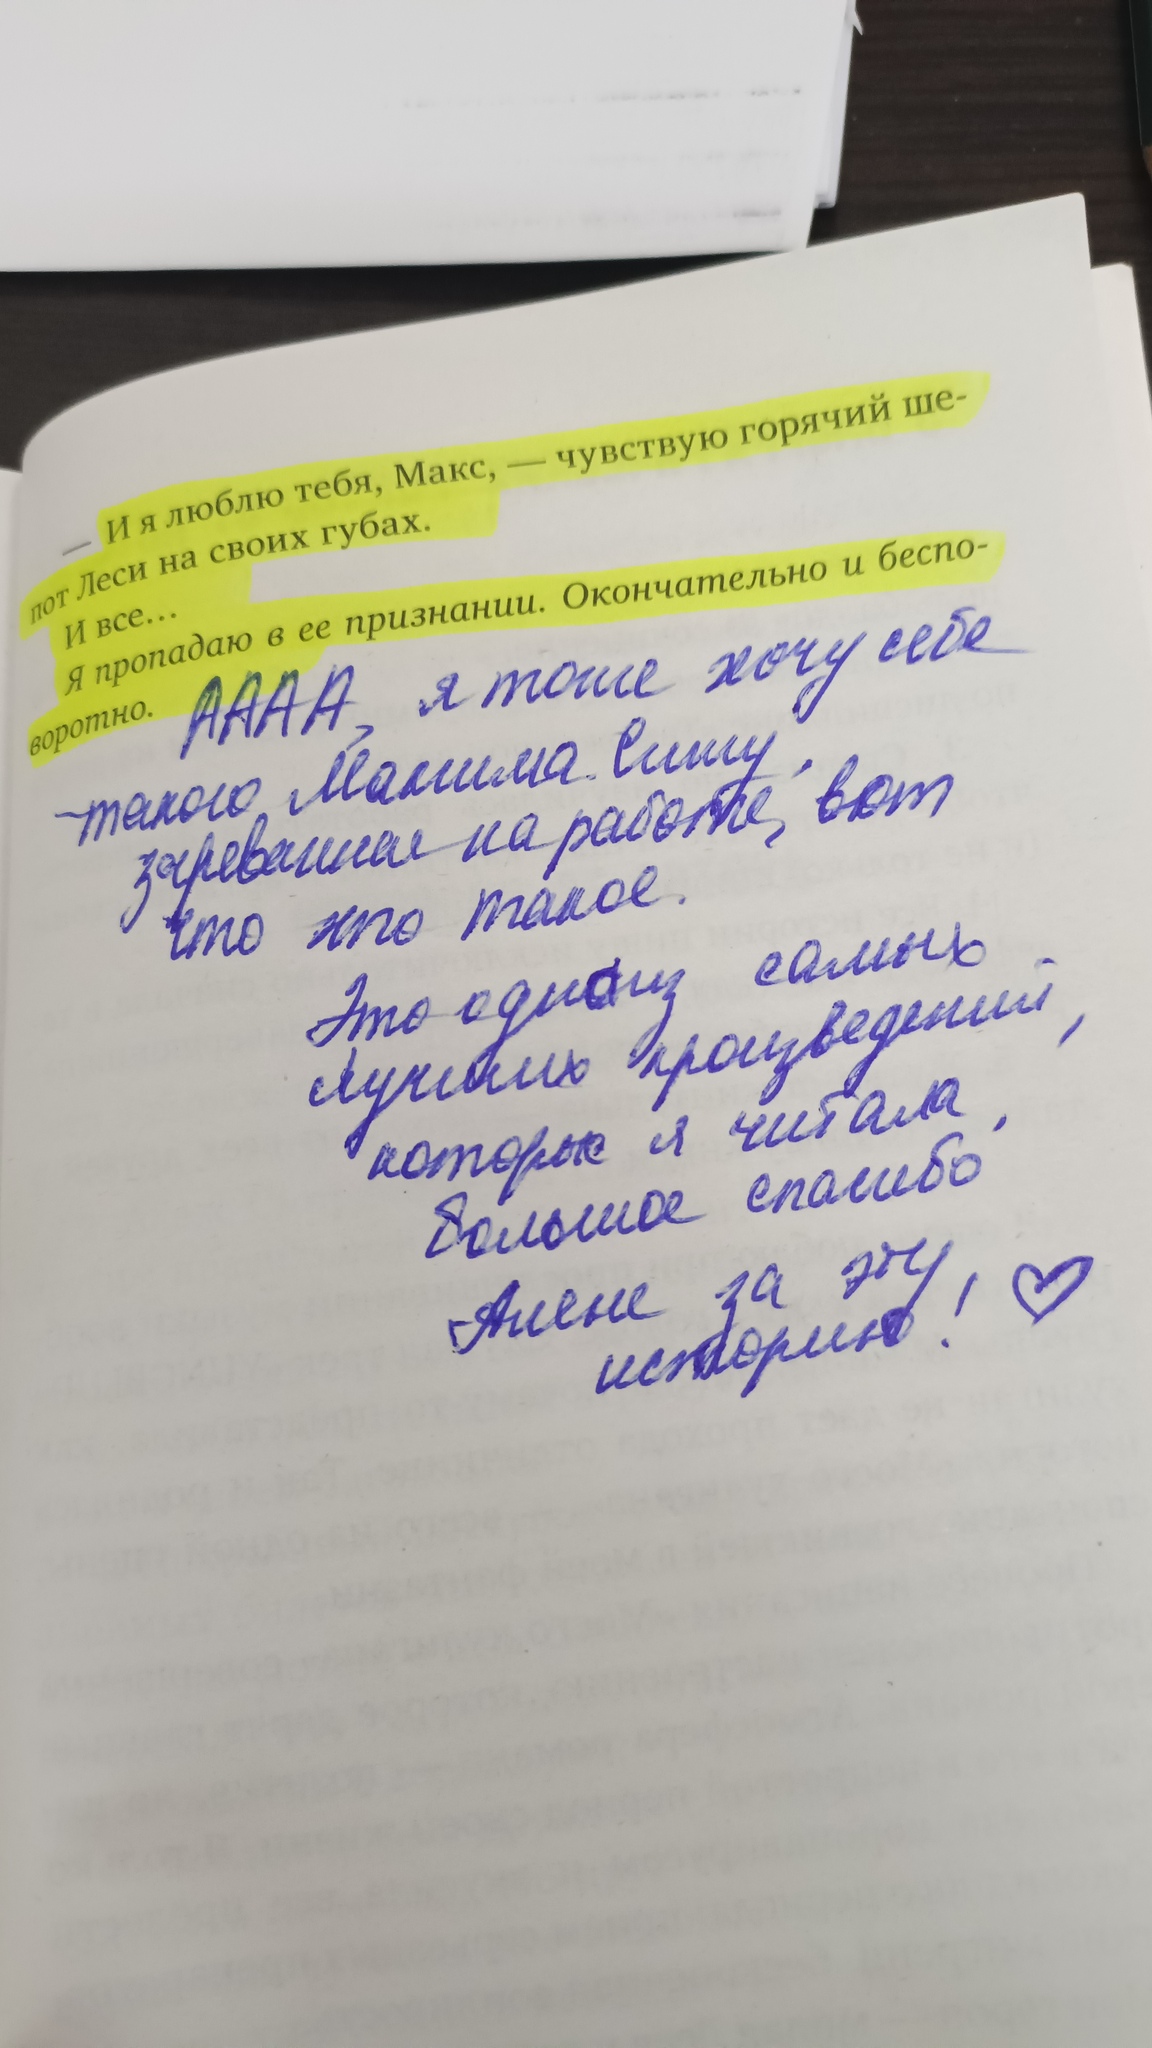 — И я люблю тебя, Макс, — чувствую горячий ше-
пот Леси на своих губах.
И все...
Я пропадаю в ее признании. Окончательно и беспо-
воротно.
АААА, я тоже хочу себе
такого Максима. Сижу,
зареванная на работе, вот
что это такое.
Это одно из самых
лучших произведений,
которые я читала,
большое спасибо
Алене за эту
историю! ♡